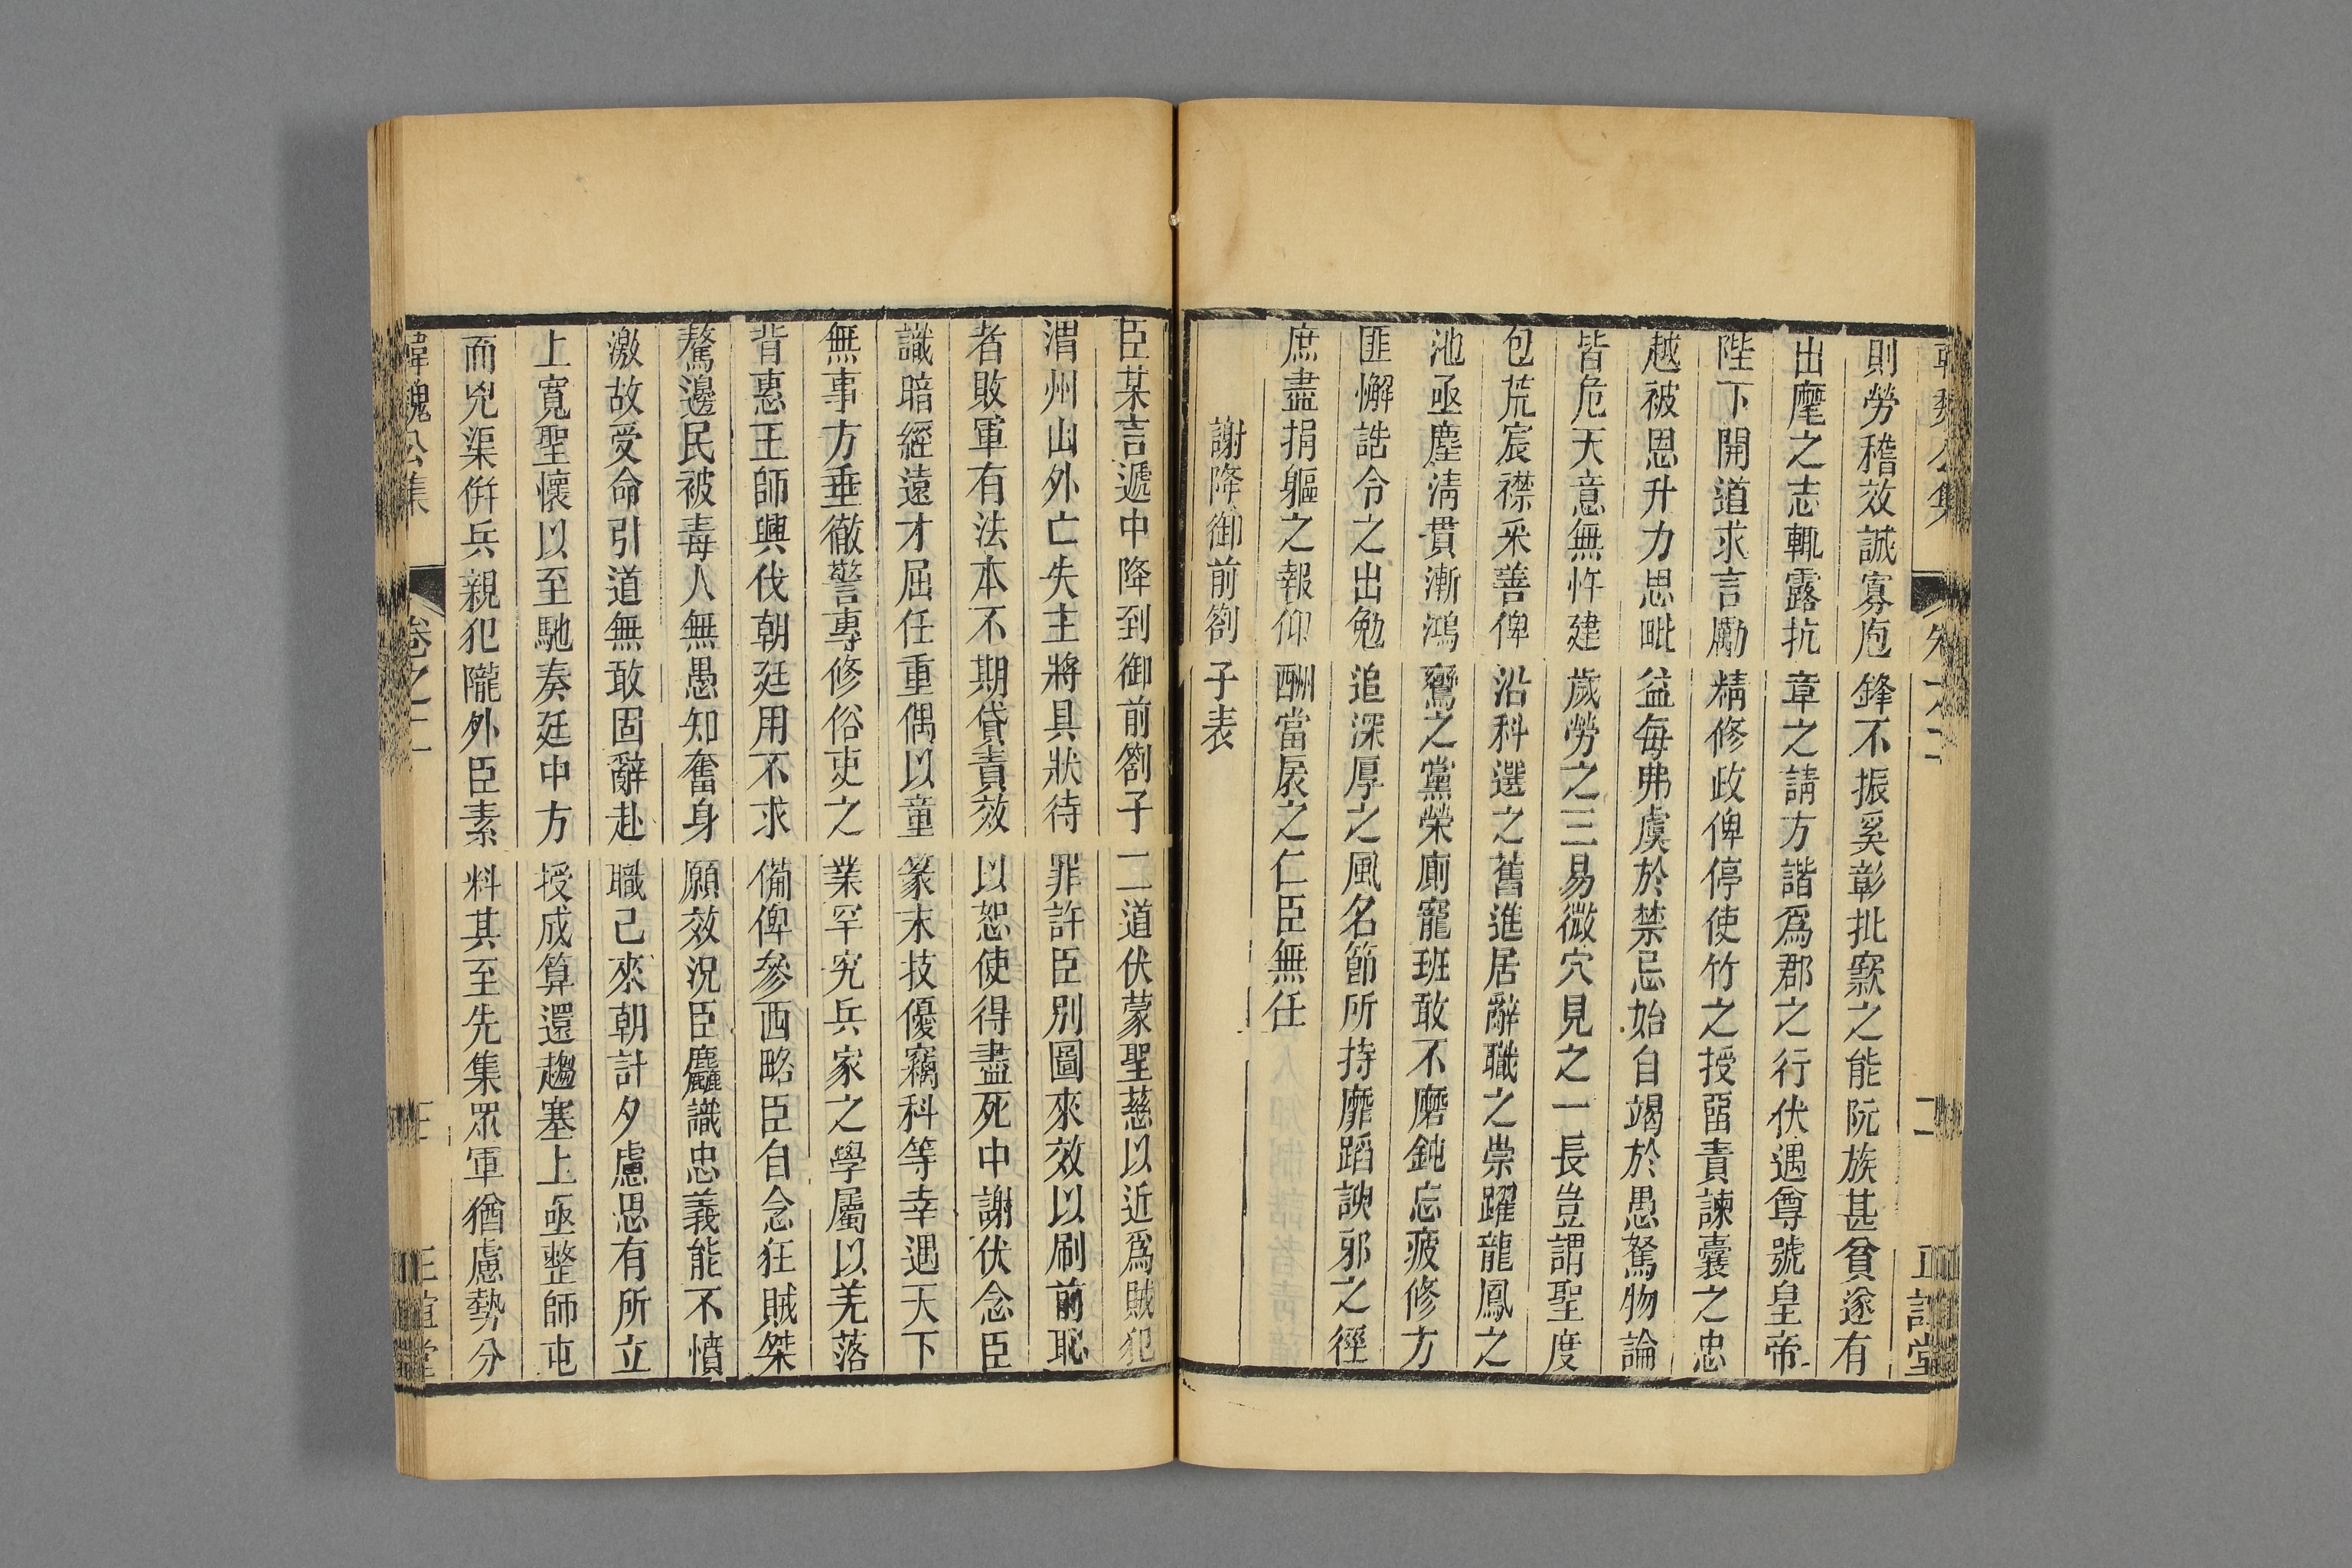 則勞稽效誠寡庖鋒不振奚彰批窾之能阮族甚貧遂有
出麾之志輒露抗章之請方諧爲郡之行伏遇尊號皇帝
陛下開道求言勵精修政俾停使竹之授畱責諫囊之忠
越被恩升力思毗益每弗虞於禁忌始自竭於愚駑物論
皆危天意無忤建歲勞之三易微穴見之一長豈謂聖度
包荒宸襟采善俾沿科選之舊進居辭職之崇躍龍鳳之
池亟塵清貫漸鴻鸞之黨榮廁寵班敢不磨鈍忘疲修方
匪懈誥令之出勉追深厚之風名節所持靡蹈諛邪之徑
庶盡捐軀之報仰酬當扆之仁臣無任
謝降御前劄子表
臣某言遞中降到御前劄子二道伏蒙聖慈以近爲賊犯
渭州山外亡失主將具狀待罪許臣別圖來效以刷前恥
者敗軍有法本不期貸責效以恕使得盡死中謝伏念臣
識暗經遠才屈任重偶以童篆末技優竊科等幸遇天下
無事方垂徹警專修俗吏之業罕究兵家之學屬以羌落
背惠王師興伐朝廷用不求備俾參西略臣自念狂賊桀
驁邊民被毒人無愚知奮身願效況臣麤識忠義能不憤
激故受命引道無敢固辭赴職己來朝計夕慮思有所立
上寬聖懷以至馳奏廷中方授成算還趨塞上亟整師屯
而兇渠併兵親犯隴外臣素料其至先集眾軍猶慮勢分
魏公集 卷之二